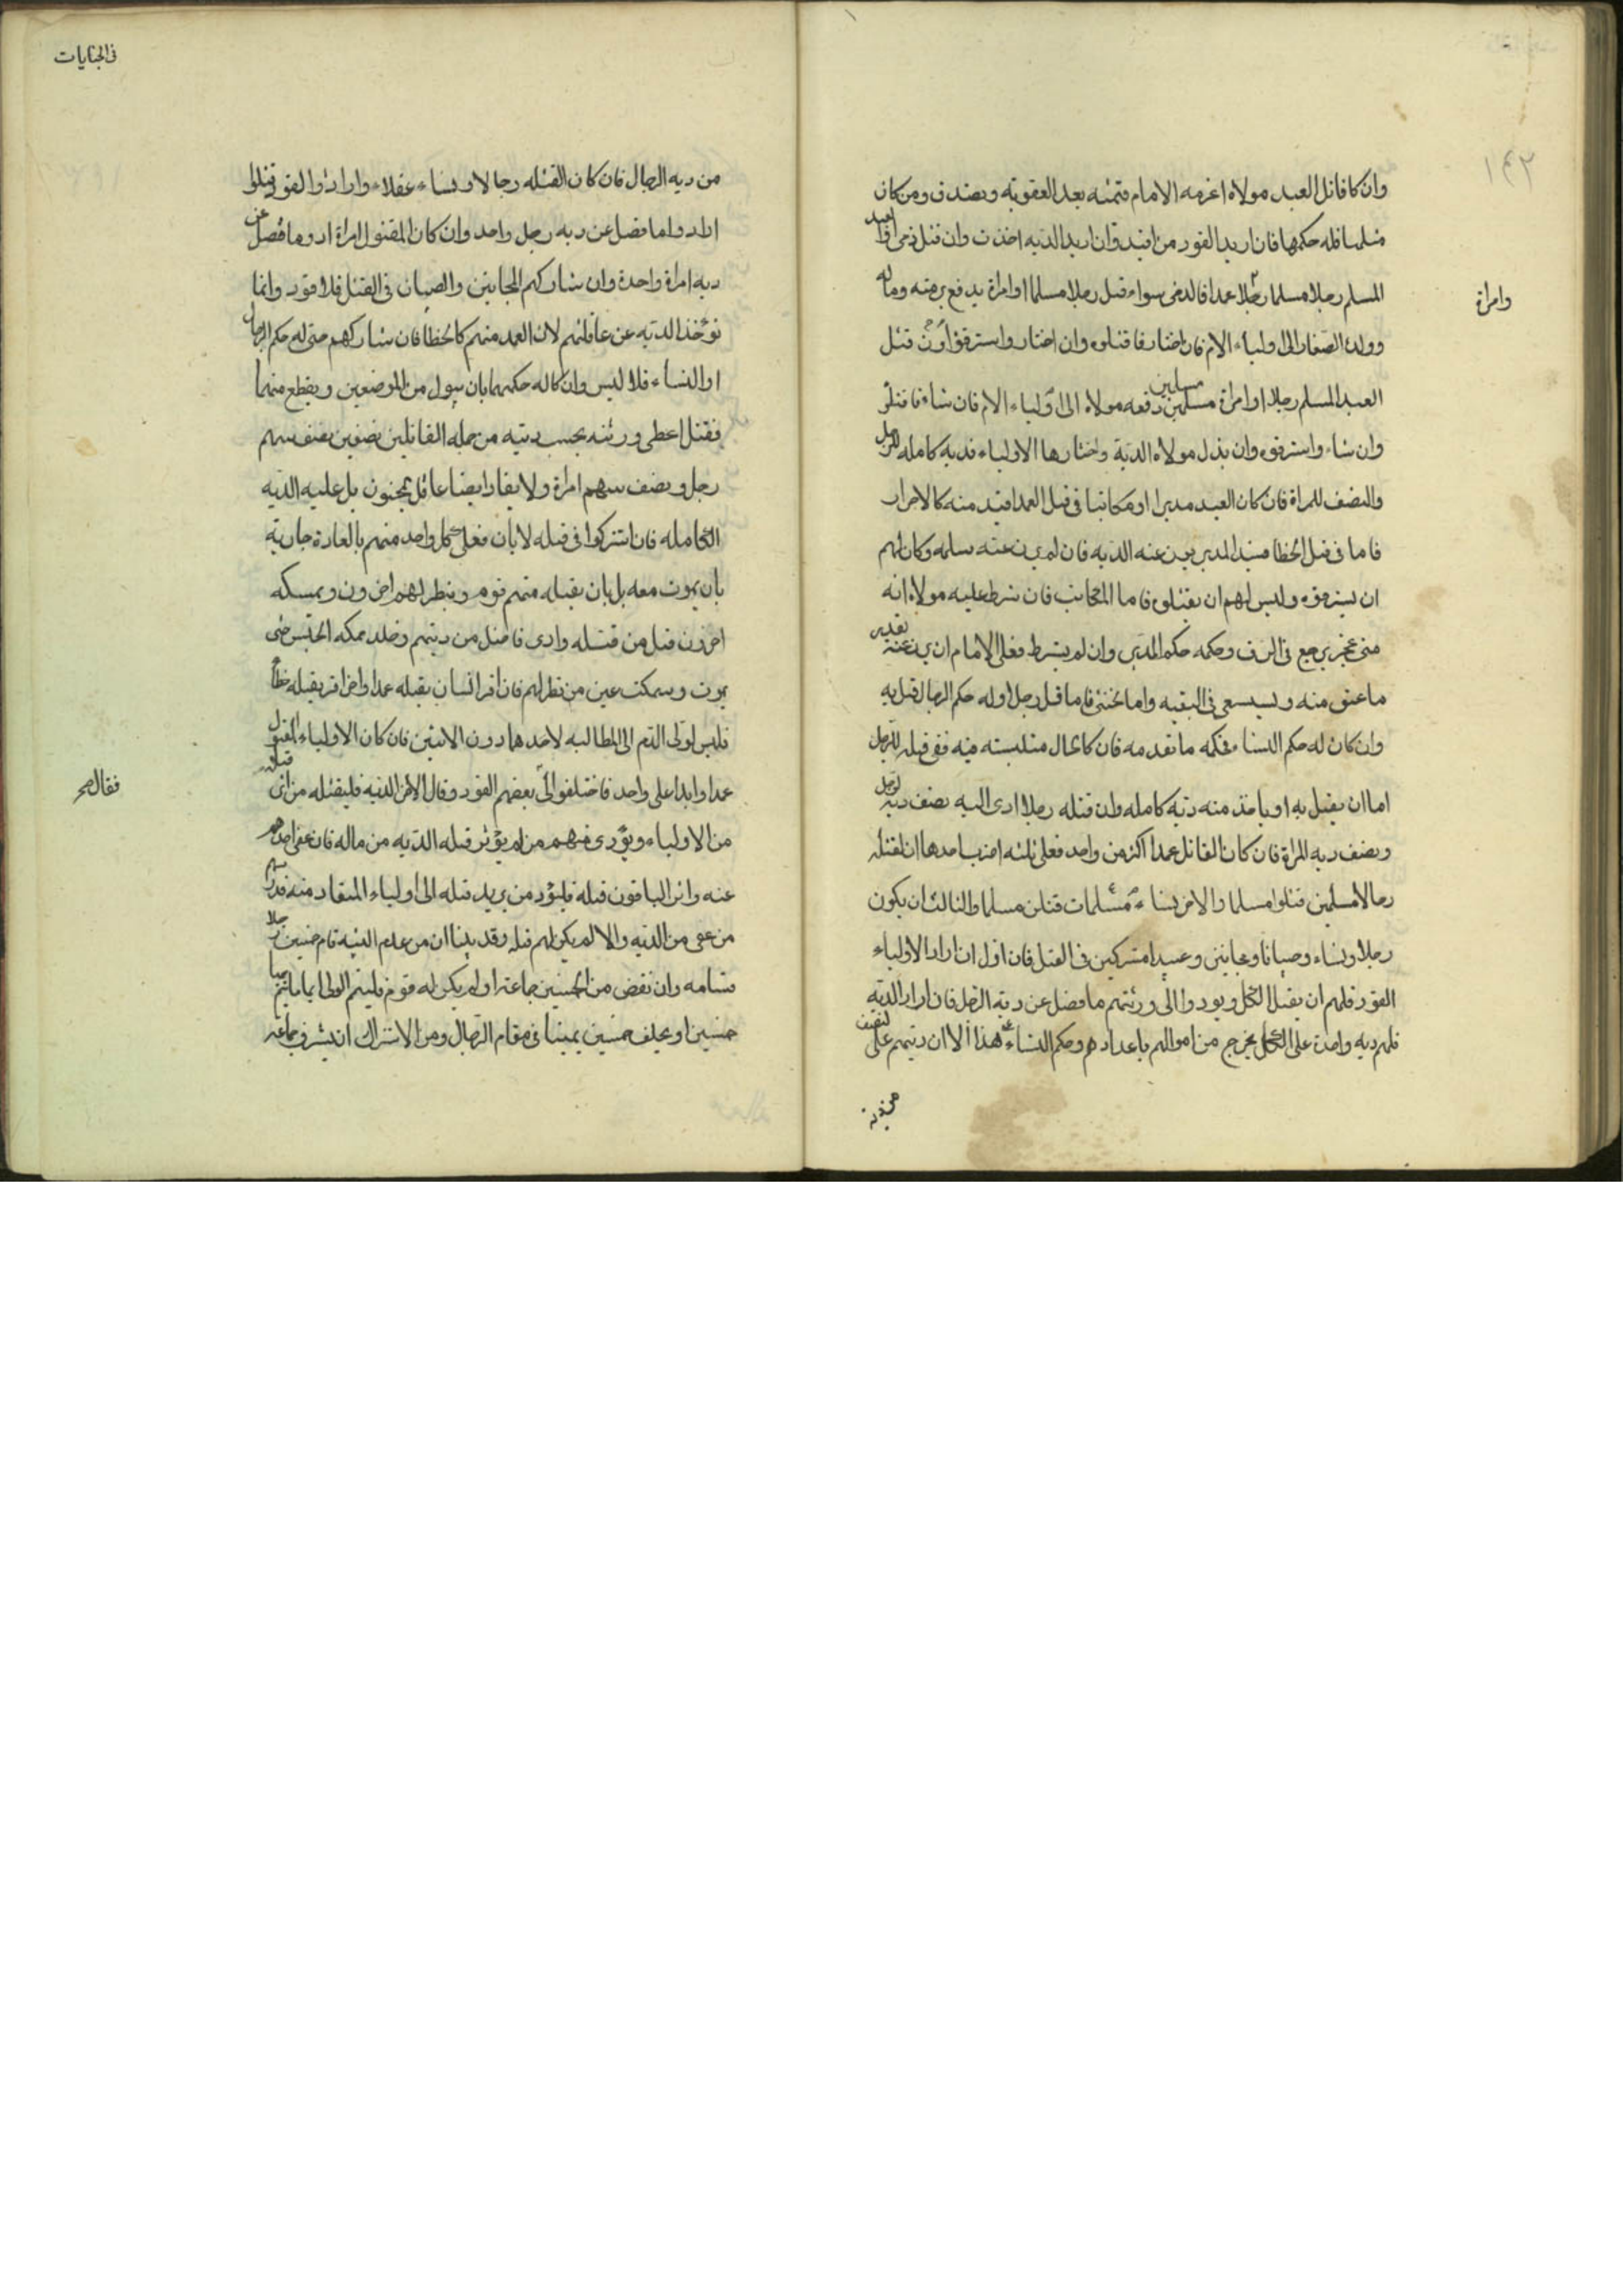 ١٤٢
وان كا قاتل العبد مولاه اغرمه الامام قيمته بعد العقوبة وتصدق ومن كان
مثلها فله حكمها فان اريد القود من اقيد وان اريد الدية اخذت وان قتل ذمي او العبد
المسلم رجلا مسلما رجلا عمدا فالذمى سواء قتل رجلا مسلما او امراة يدفع برمته وماله
وامراة
وولده الصغار الى اولياء الدم فان اختار فاقتلوه وان اختار واسترقوا وان قتل
العبد المسلم رجلا او امراة مسلمين مسلمين دفعه مولاه الى اولياء الدم فان شاء فا قتلو
وان شاء واسترقوه وان بذل مولاه الدية واختارها الاولياء فدية كامله للرجل
والنصف للمراة فان كان العبد مدبرا او مكاتبا فى قتل العمد اقيد منه كالاحرار
فاما فى قتل الخطا فسيد المدبر يدى عنه الدية فان لم يد عنه سلمه وكان لهم
ان يسترقوه وليس لهم ان يقتلوه فاما المكاتب فان شرط عليه مولاه انه
متى عجز يرجع فى الرق وحكمه حكم المدبر وان لم يشترط فعلى الامام ان يد عنه بقدر
ما عتق منه و يستسعى فى البقيه واما الخنثى فاما قتل رجل او له حكم الرجال قتل به
وان كان له حكم النساء فحكمه ما تقدمه فان كا بحال ملتبسته فيه ففى قتله للرجل
اما ان يقتل به او ياخذ منه دية كامله وان قتله رجلا ادى اليه نصف دية لرجل
ونصف دية المراة فان كان القاتل عمدا اكثر من واحد فعلى ثلثه اضرب احدها ان تقتله
رجالا مسلمين قتلوا مسلما والاخر نساء مسلمات قتلن مسلما والثالث ان يكون
رجلا ونساء وصبيانا ومجانين وعبيدا مشتركين فى القتل فان اول ان اراد الاولياء
القود فلهم ان يقتلوا الكل ويودوا الى ورثتهم ما فضل عن دية الرجل فان اراد الدية
فلهم دية واحدة على الكل يخرج من اموالهم باعدادهم وحكم النساء هذا الا ان ديتهم على النصف
من دية
فى الجنايات
من دية الرجال فان كان القتله رجالا ونساء عقلاء وارادوا القود قتلوا
ارادوا ما فضل عن دية رجل واحد وان كان المقتول امراة ادوما فضل عن
دية امراة واحدة وان شاركهم المجانين والصبيان فى القتل فلا قود وانما
تؤخذ الدية عن عاقلتهم لان العمد منهم كالخطا فان شاركهم خنثى له حكم الرجال
او النساء فلا لبس وان كا له حكمهما بان يبول من الموضعين ويقطع منهما
فقتل اعطى ورثته بحسب ديته من جمله القاتلين نصفين نصف سهم
رجل ونصف سهم امراة ولا يقاد ايضا عاقل بمجنون بل عليه الدية
الكامله فان اشتركوا فى قتله لا بان فعل كل واحد منهم بالعادة جارية
بان يموت معه بل بان يقتله منهم قوم وينظر لهم اخرون ويمسكه
اخرون قتل من قتله وادى فاضل من ديتهم وخلد ممسكه الحبس حتى
يموت وسملت عين من نظر لهم فان اقر انسان بقتله عمدا واخر اقر بقتله خطأ
فليس لولى الدم الى المطالبه لاحدهما دون الاثنين فان كان الاولياء المقتول
عمدا وابدا على واحد فاختلفوا الى بعضهم القود وقال الاخر الدية فليقتله من اى قتله
فقال صح
من الاولياء ويؤدى منهم من لم يؤثر قتله الدية من ماله فان عفى احدهم
عنه واثر الباقون قتله فليؤد من يريد قتله الى اولياء المقاد منه قدر سهم
من عفى من الدية والا لم يكن لهم قتله وقد بينا ان من علم البينه قام خمسين رجلا
قسامه وان نقض من الخمسين جماعة او لم يكن له قوم فليتم الولى ايما
خمسين او يحلف خمسين يمينا فى مقام الرجال ومن الاشتراك ان يشرف جماعه